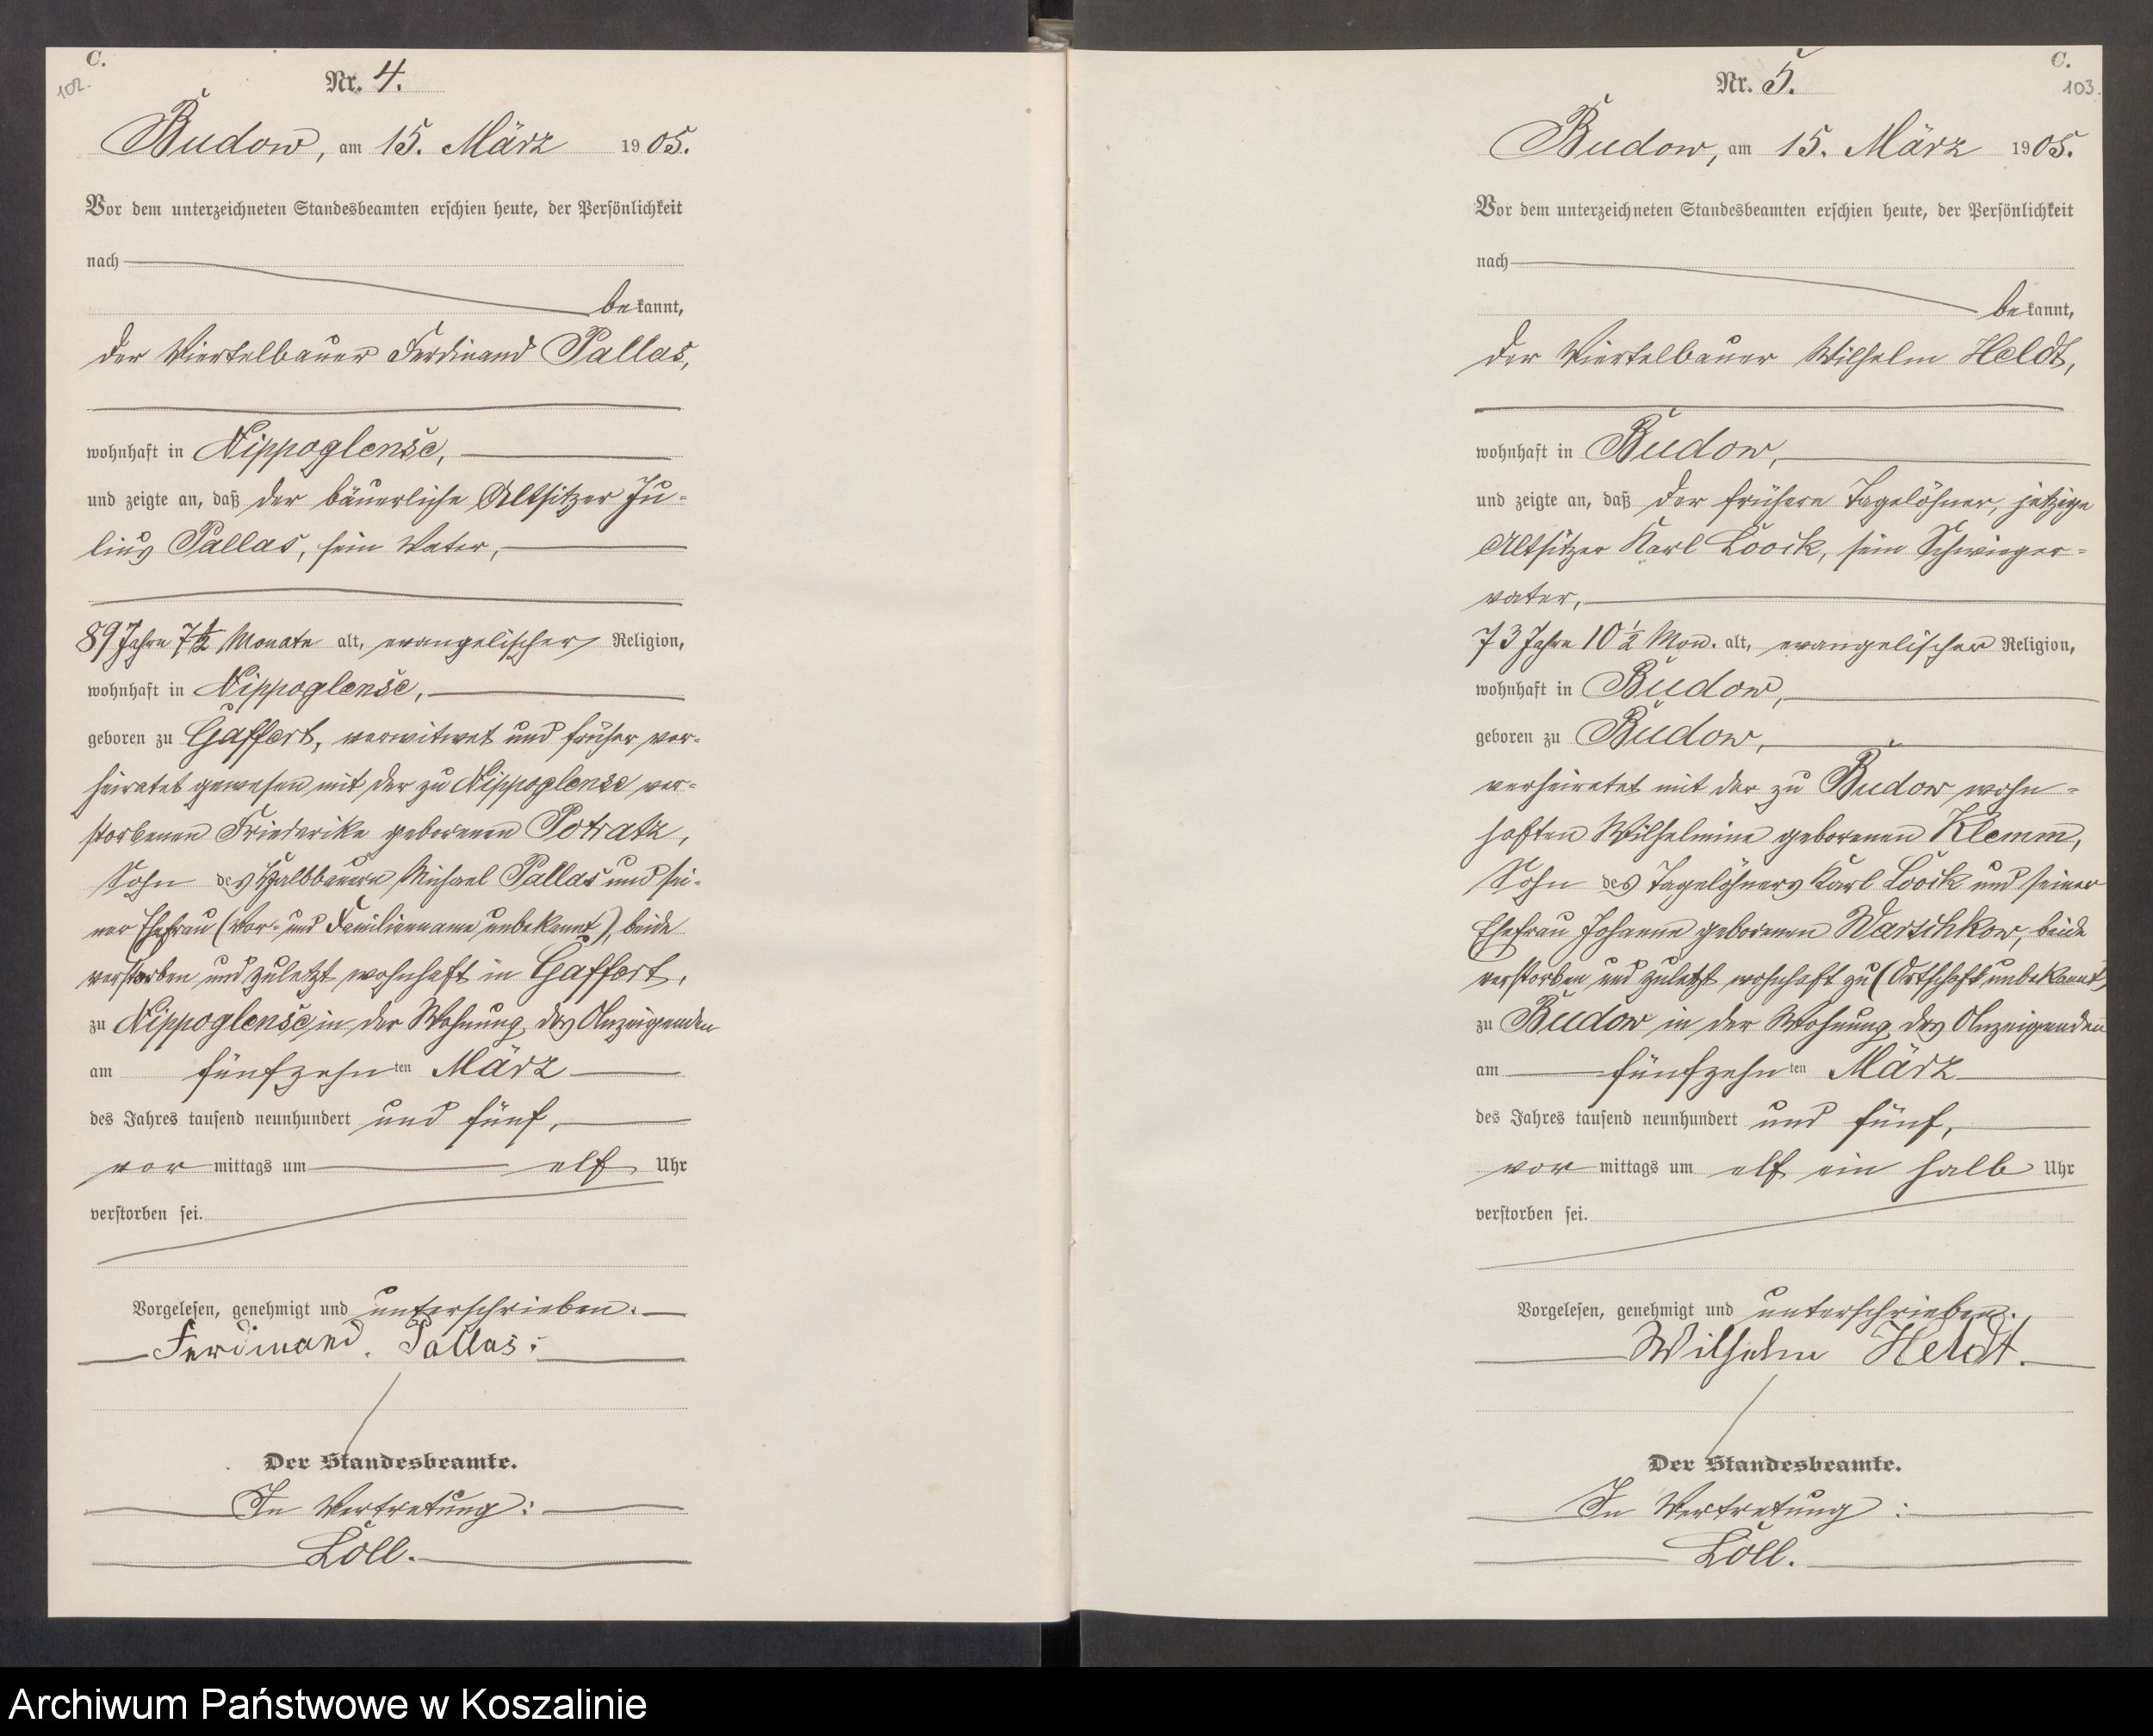 C.
102.
Nr. 4.
Budow, am 15. März 1905.
Vor dem unterzeichneten Standesbeamten erschien heute, der Persönlichkeit
nach
bekannt,
der Viertelbauer Ferdinand Pallas,
wohnhaft in Nippoglense,
und zeigte an, daß der bäuerliche Altsitzer Ju-
lius Pallas, sein Vater,
89 Jahre 7 1/2 Monate alt, evangelischer Religion,
wohnhaft in Nippoglense,
geboren zu Gaffert, verwitwet und früher ver-
heiratet gewesen mit der zu Nippoglense ver-
storbenen Friederike geborenen Potratz,
Sohn des Halbbauern Michael Pallas und sei-
ner Ehefrau (Vor- und Familienname unbekannt), beide
verstorben und zuletzt wohnhaft in Gaffert,
zu Nippoglense in der Wohnung des Anzeigenden
am fünfzehnten März
des Jahres tausend neunhundert und fünf,
vormittags um elf Uhr
verstorben sei.
Vorgelesen, genehmigt und unterschrieben.
Ferdinand Pallas.
Der Standesbeamte.
In Vertretung:
Löll.
C.
103.
Nr. 5.
Budow, am 15. März 1905.
Vor dem unterzeichneten Standesbeamten erschien heute, der Persönlichkeit
nach
bekannt,
der Viertelbauer Wilhelm Heldt,
wohnhaft in Budow,
und zeigte an, daß der frühere Tagelöhner, jetzige
Altsitzer Karl Loock, sein Schwieger-
vater,
73 Jahre 10 1/2 Mon. alt, evangelischer Religion,
wohnhaft in Budow,
geboren zu Budow,
verheiratet mit der zu Budow wohn-
haften Wilhelmine geborenen Klemm,
Sohn des Tagelöhners Karl Loock und seiner
Ehefrau Johanne geborenen Warschkow, beide
verstorben und zuletzt wohnhaft zu (Ortschaft unbekannt)
zu Budow in der Wohnung des Anzeigenden
am fünfzehnten März
des Jahres tausend neunhundert und fünf,
vormittags um elf ein halb Uhr
verstorben sei.
Vorgelesen, genehmigt und unterschrieben.
Wilhelm Heldt.
Der Standesbeamte.
In Vertretung:
Löll.
Archiwum Państwowe w Koszalinie